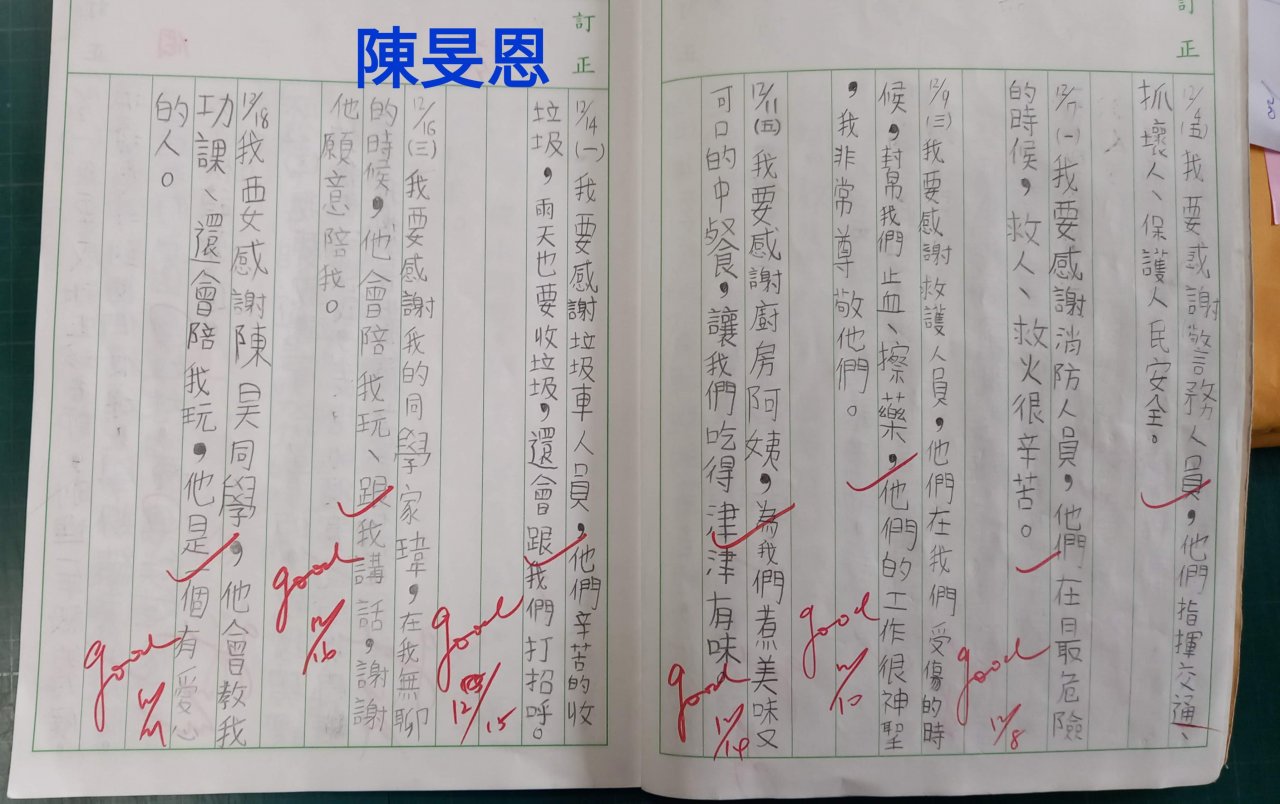 陳旻恩
訂正
訂正
我要感謝警務人員，他們指揮交通、
抓壞人、保護人民安全。
12/7(一)我要感謝消防人員，他們在最危險
的時候，救人、救火很辛苦。
12/9(三)我要感謝救護人員，他們在我們受傷的時
候，幫我們止血、擦藥，他們的工作很神聖
，我非常尊敬他們。
12/11(五)我要感謝廚房阿姨，為我們煮美味又
可口的中餐，讓我們吃得津津有味
12/14(一)我要感謝垃圾車人員，他們辛苦的收
垃圾，雨天也要收垃圾，還會跟我們打招呼。
12/16(三)我要感謝我的同學家瑋，在我無聊
的時候，他會陪我玩、跟我講話，謝謝
他願意陪我。
12/18我要感謝陳昊同學，他會教我
功課、還會陪我玩，他是一個有愛心
的人。
good
12/8
good
12/10
good
12/14
good
12/15
good
12/16
good